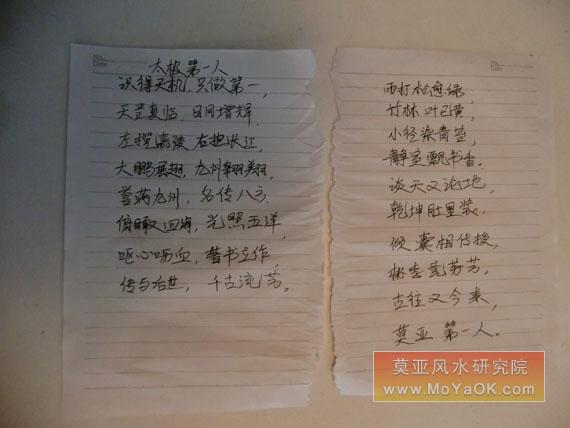 太极第一人
识得天机，只做第一，
天罡真临，日月增辉，
左揽涪陵，右抱长江，
大鹏展翅，九州翱翔，
誉满九州，名传八方，
俯瞰四海，光照五洋，
呕心呖血，著书立作，
传与后世，千古流芳。
雨打松愈绿，
竹林叶已黄，
小径染青苔，
静室飘书香。
谈天又论地，
乾坤肚里装，
倾囊相传授，
古往又今来，
莫亚第一人。
莫亚风水研究院
www.MoYaOK.com